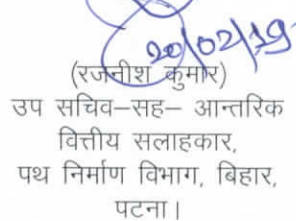 20/02/19
(रजनीश कुमार)
उप सचिव–सह– आन्तरिक
वित्तीय सलाहकार,
पथ निर्माण विभाग, बिहार,
पटना।